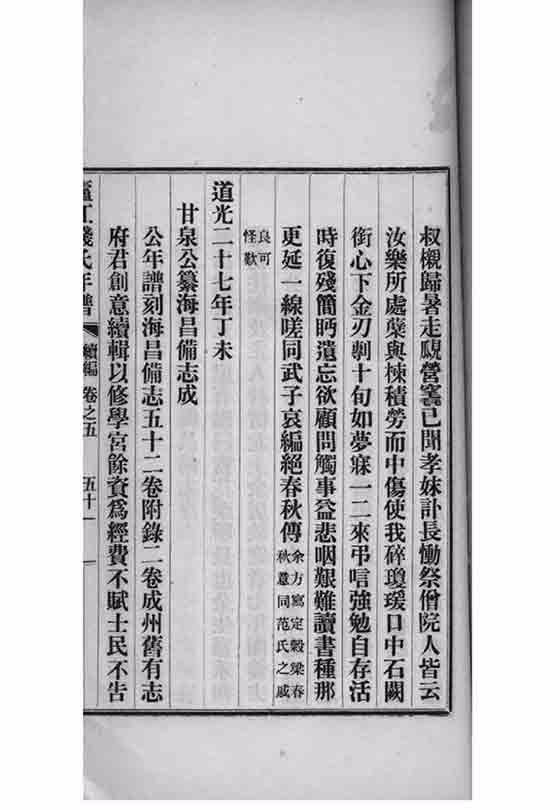 叔櫬歸暑走覛營已聞孝妹訃長慟祭僧院人皆云
汝樂所處與楝積勞而中傷使我碎瓊瑗口中石闕
銜心下金刃剚十旬如夢寐一二來弔唁強勉自存活
時復殘簡眄遺忘欲顧問觸事益悲咽艱難讀書種那
更延一線嗟同武子哀編絕春秋傳
余方寫定穀梁春
秋同范氏之戚
良可
怪歎
道光二十七年丁未
甘泉公纂海昌備志成
公年譜刻海昌備志五十二卷附錄二卷成州舊有志
府君創意續輯以修學宮餘資爲經費不賦士民不告
江錢氏年譜 續編 卷之五 五十一